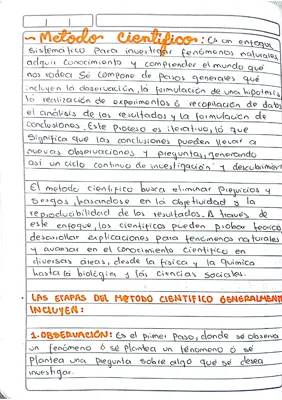 ~ Metodo Cientifico: Es un enfoque
sistematico para investigar fenómenos naturales,
adquirir conocimiento y comprender el mundo que
nos rodea Se compone de pasos generales que
incluyen la observación, la formulación de una hipotesis
la realización de experimentos ó recopilación de datos
el análisis de los resultados y la formulación de
conclusiones. Este Proceso es iterativo, lo que
significa que las conclusiones pueden llevar a
nuevas observaciones y preguntas, generando
así un ciclo continuo de investigación y descubrimien
El metodo cientifico busca eliminar prejuicios y
sesgos, basandose en la objetividad y la
reproducibilidad de los resultados. A través de
este enfoque, los cientificos pueden probar teorias,
desarrollar explicaciones para fenómenos naturales
y avanzar en el conocimiento cientifico en
diversas áreas, desde la fisica y la Quimica
hasta la biología y las ciencias sociales.
LAS ETAPAS DEL METODO CIENTIFICO GENERALMENTE
INCLUYEN:
1. OBSERVACIÓN: Es el primer Paso, donde se observa
un fenómeno ó se plantea un fénomeno ó se
Plantea una pregunta sobre algo que se desea
investigar.